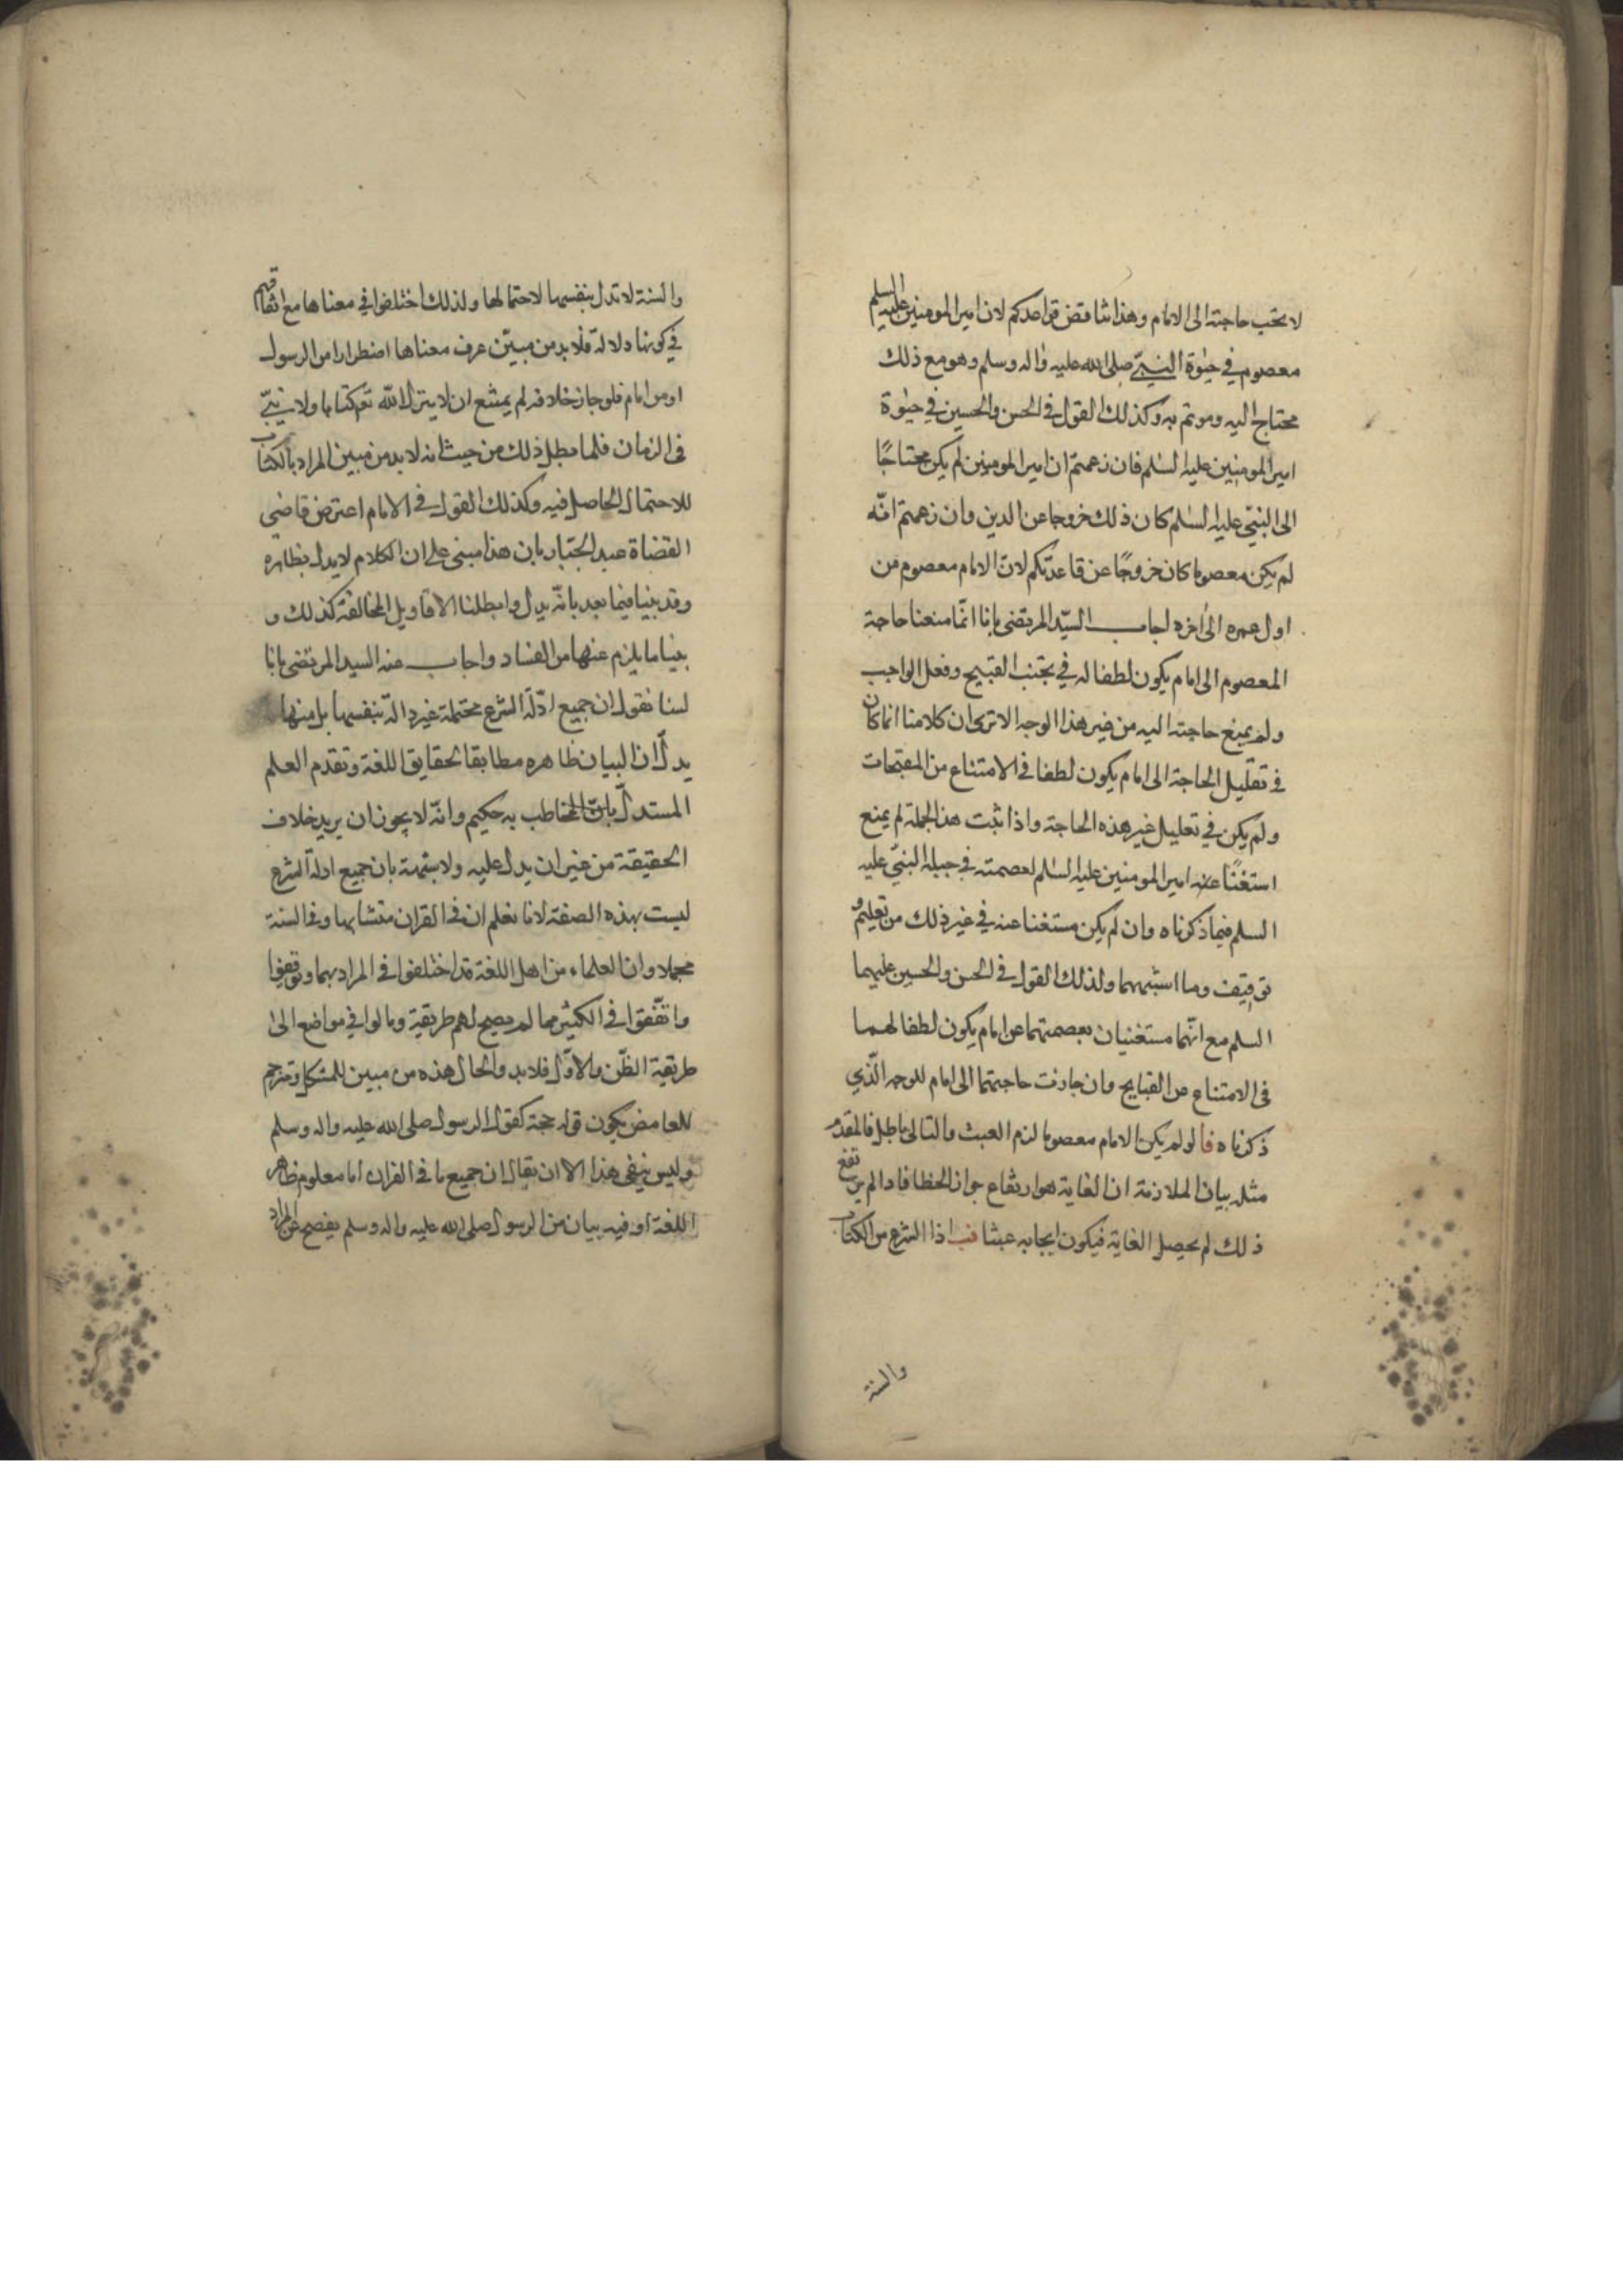 لا يجب حاجته الى الامام وهذا تناقض قواعدكم لان امير المومنين عليه السلم
معصوم في حيوة النبي صلى الله عليه واله وسلم وهو مع ذلك
محتاج اليه وموتم به وكذلك القول في الحسن والحسين في حيوة
امير المومنين عليه السلم فان زعمتم ان امير المومنين لم يكن محتاجًا
الى النبي عليه السلم كان ذلك خروجا عن الدين وان زعمتم انّه
لم يكن معصوما كان خروجًا عن قاعدتكم لانّ الامام معصوم من
اول عمره الى اخره اجاب السيّد المرتضى بانا انّما منعنا حاجة
المعصوم الى امام يكون لطفا له في تجنب القبيح وفعل الواجب
ولم يمنع حاجته اليه من غير هذا الوجه الا ترى ان كلامنا انما كان
في تعليل الحاجة الى امام يكون لطفا في الامتناع من المقبحات
ولم يكن في تعليل غير هذه الحاجة واذا ثبت هذا الجملة لم يمنع
استغنًا عنه امير المومنين عليه السلم لعصمته في حيلة النبي عليه
السلم فيما ذكرناه وان لم يكن مستغنا عنه في غير ذلك من تعليم و
توقيف وما اشبههما ولذلك القول في الحسن والحسين عليهما
السلم مع انّهما مستغنيان بعصمتهما عن امام يكون لطفا لهما
في الامتناع من القبايح وان جازت حاجتهما الى امام للوجه الّذي
ذكرناه فا لو لم يكن الامام معصوما لزم العبث والتالى باطل فالمقدم
مثله بيان الملازمة ان الغاية هو ارتفاع جواز الخطا فاذا لم يرتفع
ذلك لم يحصل الغاية فيكون ايجابه عبثا فب اذا الشرع من الكتاب
والسنة
والسنة لا تدل بنفسها لاحتمالها ولذلك اختلفوا في معناها مع اتفاقهم
في كونها دلالة فلا بد من مبيّن عرف معناها اضطرارا من الرسول
او من امام فلو جاز خلافه لم يمتنع ان لا ينزل الله تع كتابا ولا نبيّ
في الزمان فلما بطل ذلك من حيث انه لا بد من مبين المراد بالكتاب
للاحتمال الحاصل فيه وكذلك القول في الامام اعترض قاضي
القضاة عبد الجبار بان هذا مبنى على ان الكلام لا يدل بظاهره
وقد بينا فيما بعد بانّه يدل وابطلنا الاقاويل المخالفة كذلك و
بينا ما يلزم عنها من الفساد واجاب عنه السيد المرتضى بانا
لسنا نقول ان جميع ادّلة الشرع محتملة غير دالّة بنفسها بل منها
يدلّ ان البيان ظاهره مطابقا لحقايق اللغة وتقدم العلم
المستدلّ بانّ المخاطب به حكيم وانّه لا يجوز ان يريد خلاف
الحقيقة من غير ان يدل عليه ولا شبهة بان جميع ادلة الشرع
ليست بهذه الصفة لانا نعلم ان في القران متشابها وفي السنة
مجملا وان العلماء من اهل اللغة قد اختلفوا في المراد بهما وتوقفوا
واتفقوا في الكثير مما لم يصح لهم طريقة ومالوا في مواضع الى
طريقة الظّن والاوّل فلا بد والحال هذه من مبين للمشكل وترجم
للغامض يكون قوله حجة كقول الرسول صلى الله عليه واله وسلم
وليس ينفى هذا الا ان يقال ان جميع ما في القران اما معلوم ظاهر
اللغة او فيه بيان من الرسول صلى الله عليه واله وسلم يفصح عن المراد